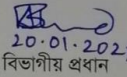 20.01.202
বিভাগীয় প্রধান